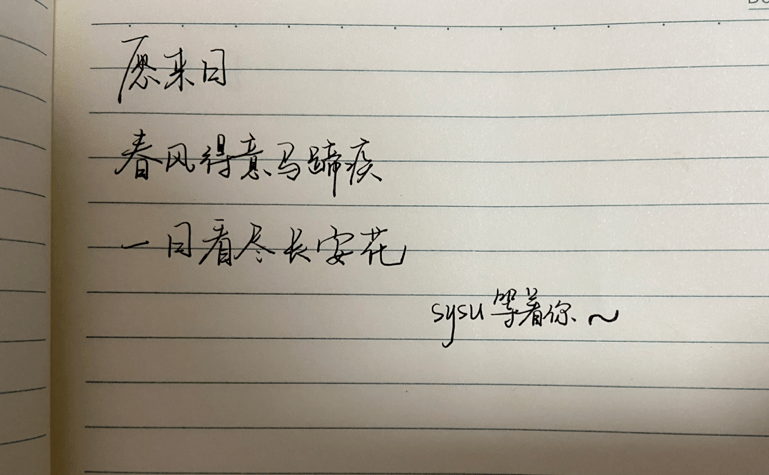 愿来日
春风得意马蹄疾
一日看尽长安花
sysu等着你~